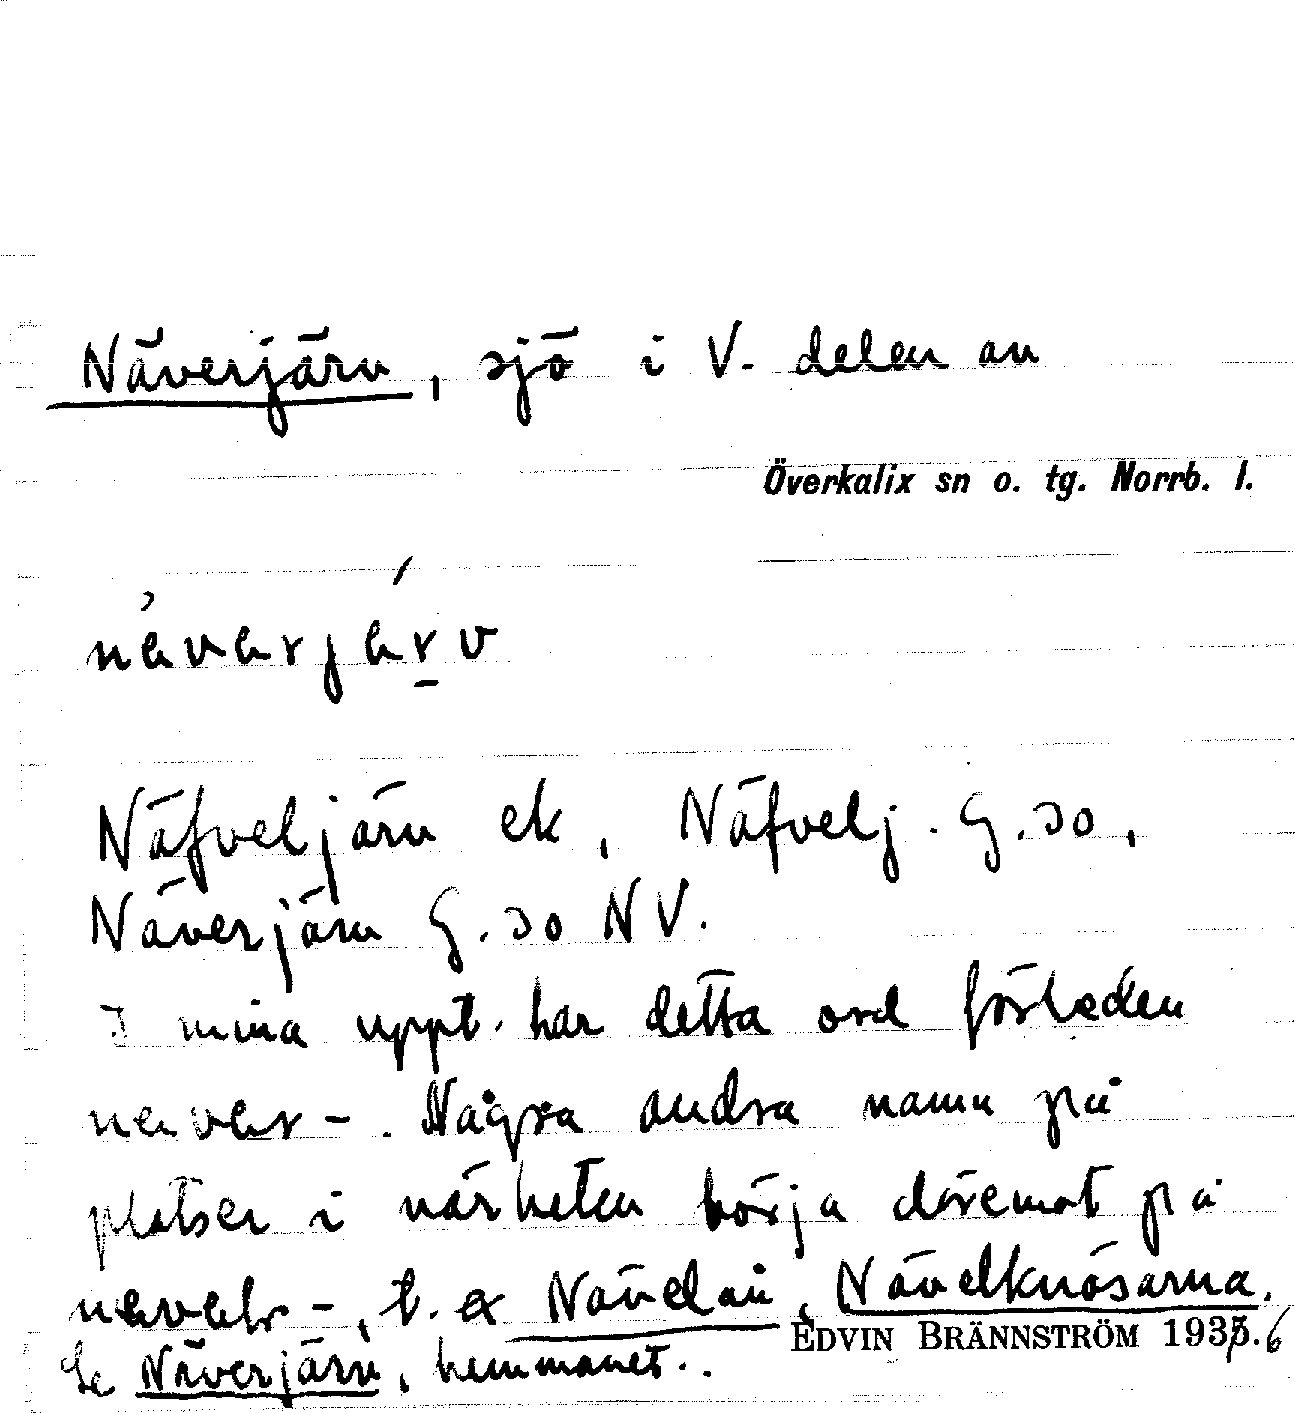 Näverjärv, sjö i V. delen av
Överkalix sn o. tg. Norrb. l.
nävärjärv
Näfveljärv ek, Näfvelj. G.30,
Näverjärv G.30 NV.
I mina uppt. har detta ord förleden
nävär-. Några andra namn på
platser i närheten börja däremot på
näväl-, t. ex Nävelån, Nävelknösarna.
EDVIN BRÄNNSTRÖM 1935.6
Se Näverjärv, hemmanet.